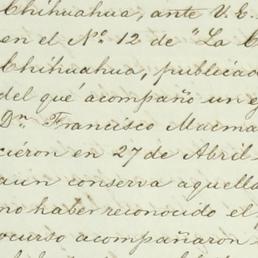 Chihuahua, ante V. E.
en el Nº 12 de "La C
Chihuahua, publicad
del que acompaño un ej
Dn Francisco Macma
cieron en 27 de Abril
aun conserva aquella
no haber reconocido el p
ocurso acompañaron